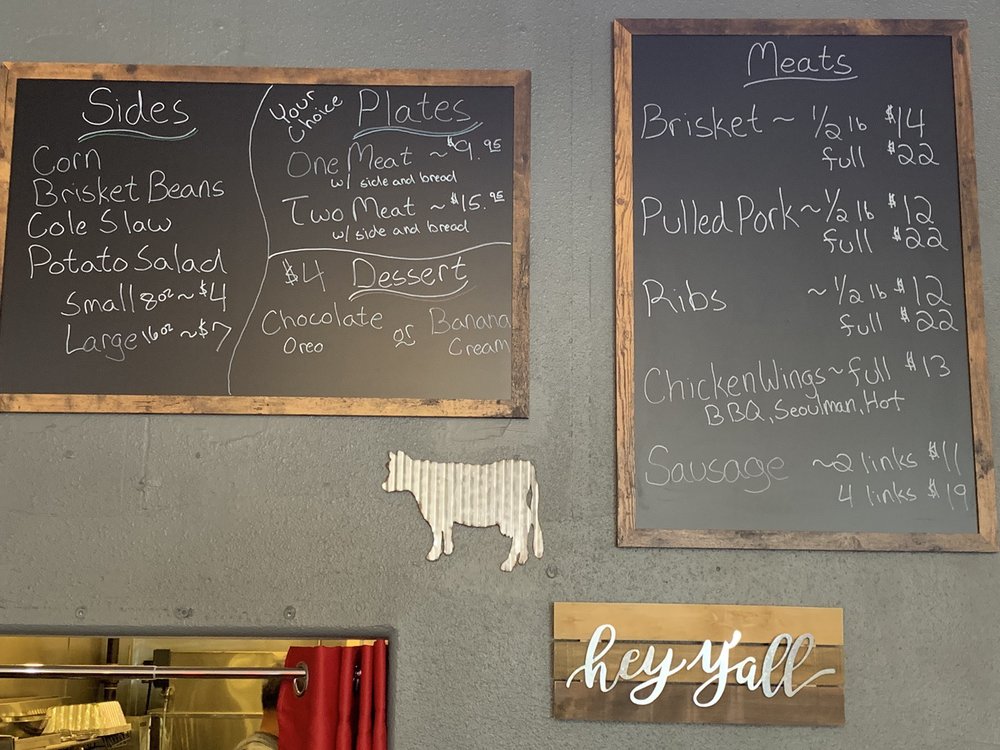 Sides
Corn
Brisket Beans
Cole Slaw
Potato Salad
Small 8oz ~ $4
Large 16oz ~ $7
Your Choice
Plates
One Meat ~ $9.95
w/ side and bread
Two Meat ~ $15.95
w/ side and bread
$4 Dessert
Chocolate or Banana
Oreo Cream
Meats
Brisket ~ 1/2 lb $14
full $22
Pulled Pork ~ 1/2 lb $12
full $22
Ribs ~ 1/2 lb $12
full $22
Chicken Wings ~ full $13
BBQ, Seoulman, Hot
Sausage ~ 2 links $11
4 links $19
hey y'all